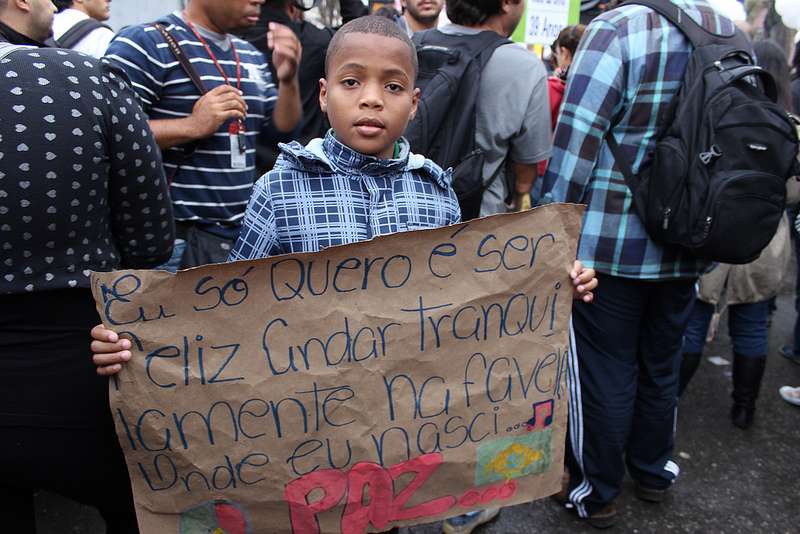 39 Anos
Eu só Quero é ser
feliz andar tranqui
lamente na favela
Onde eu nasci...
PAZ...